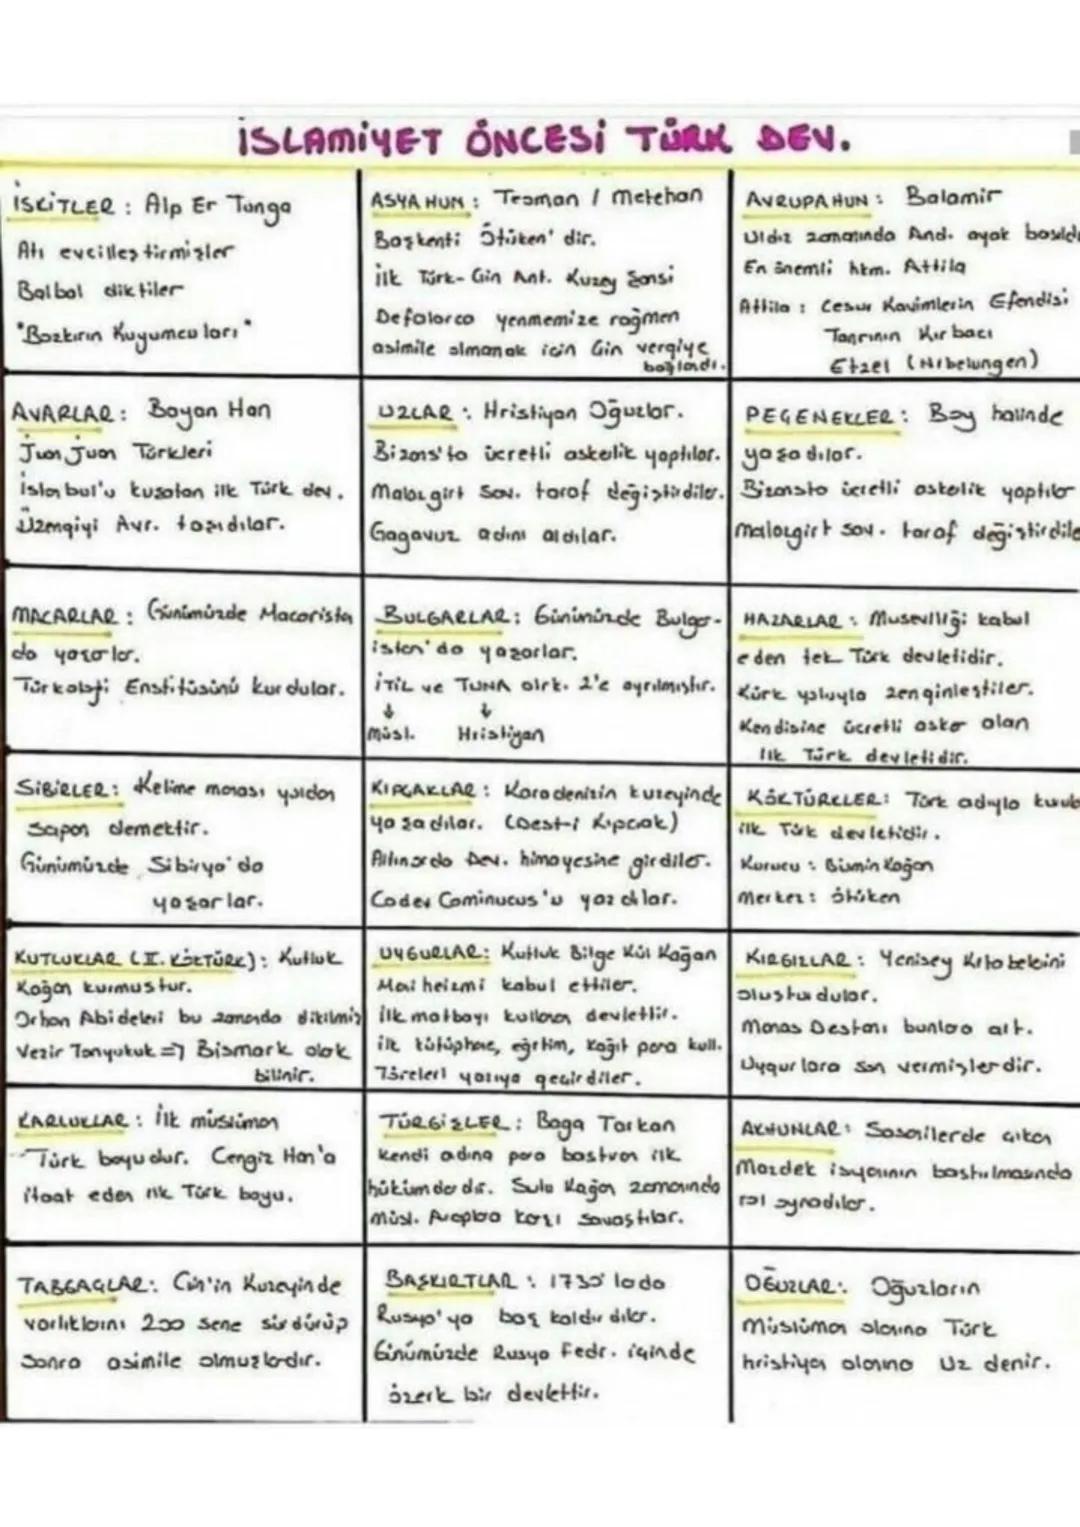 İSLAMİYET ÖNCESİ TÜRK DEV.
İSKİTLER : Alp Er Tunga
Atı evcilleştirmişler
Balbal diktiler
"Bozkırın Kuyumcuları"
ASYA HUN : Teoman / Metehan
Başkenti Ötüken' dir.
İlk Türk-Çin Ant. Kuzey Şansi
Defalarca yenmemize rağmen
asimile olmamak için Çin vergiye
bağlandı.
AVRUPA HUN : Balamir
Uldız zamanında And. ayak basıldı
En önemli hkm. Attila
Attila : Cesur Kavimlerin Efendisi
Tanrının Kırbacı
Etzel (Nibelungen)
AVARLAR : Bayan Han
Juan Juan Türkleri
İstanbul'u kuşatan ilk Türk dev.
Üzengiyi Avr. taşıdılar.
UZLAR : Hristiyan Oğuzlar.
Bizans'ta ücretli askerlik yaptılar.
Malazgirt Sav. taraf değiştirdiler.
Gagavuz adını aldılar.
PEÇENEKLER : Boy halinde
yaşadılar.
Bizansta ücretli askerlik yaptılar
Malazgirt Sav. taraf değiştirdile
MACARLAR : Günümüzde Macarista
da yaşarlar.
Türkoloji Enstitüsünü kurdular.
BULGARLAR : Günümüzde Bulgar-
istan'da yaşarlar.
İTİL ve TUNA olrk. 2'e ayrılmıştır.
↓ ↓
Müsl. Hristiyan
HAZARLAR : Museviliği kabul
eden tek Türk devletidir.
Kürk yoluyla zenginleştiler.
Kendisine ücretli asker alan
ilk Türk devletidir.
SİBİRLER : Kelime manası yoldan
sapan demektir.
Günümüzde Sibirya'da
yaşarlar.
KIPÇAKLAR : Karadenizin kuzeyinde
yaşadılar. (Dest-i Kıpçak)
Altınorda Dev. himayesine girdiler.
Codex Cominucus'u yazdılar.
KÖKTÜRKLER : Türk adıyla kurula
ilk Türk devletidir.
Kurucu : Bumin Kağan
Merkez : Ötüken
KUTLUKLAR (II. KÖKTÜRK) : Kutluk
Kağan kurmuştur.
Orhan Abideleri bu zamanda dikilmiş
Vezir Tonyukuk => Bismark olarak
bilinir.
UYGURLAR : Kutluk Bilge Kül Kağan
Maiheizmi kabul ettiler.
ilk matbayı kullanan devlettir.
ilk kütüphane, eğitim, kağıt para kull.
Töreleri yazıya geçirdiler.
KIRGIZLAR : Yenisey Kitabelerini
oluşturdular.
Manas Destanı bunlara ait.
Uygurlara son vermişlerdir.
KARLUKLAR : İlk müslüman
Türk boyudur. Cengiz Han'a
itaat eden ilk Türk boyu.
TÜRGİŞLER : Baga Tarkan
kendi adına para bastıran ilk
hükümdardır. Sulu Kağan zamanında
Müsl. Araplara karşı savaştılar.
AKHUNLAR : Sasanilerde çıkan
Mazdek isyanının bastırılmasında
rol oynadılar.
TABGAÇLAR : Çin'in Kuzeyinde
varlıklarını 200 sene sürdürüp
sonra asimile olmuşlardır.
BAŞKIRTLAR : 1730' larda
Rusya'ya baş kaldırdılar.
Günümüzde Rusya Fedr. içinde
özerk bir devlettir.
OĞUZLAR : Oğuzların
Müslüman olanına Türk
hristiyan olanına Uz denir.